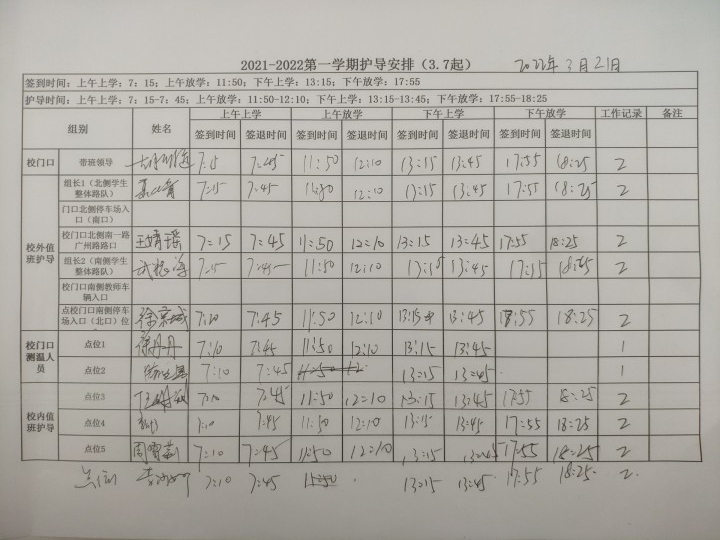 2021-2022第一学期护导安排（3.7起） 2022年3月21日
签到时间：上午上学：7：15；上午放学：11:50；下午上学：13:15；下午放学：17:55
护导时间：上午上学：7：15-7：45；上午放学：11:50-12:10；下午上学：13:15-13:45；下午放学：17:55-18:25
组别 姓名 上午上学 上午放学 下午上学 下午放学 工作记录 备注
签到时间 签退时间 签到时间 签退时间 签到时间 签退时间 签到时间 签退时间
校门口 带班领导 7:15 7:45 11:50 12:10 13:15 13:45 17:55 18:25 2
校外值班护导
组长1（北侧学生整体路队） 7:15 7:45 11:50 12:10 13:15 13:45 17:55 18:25 2
门口北侧停车场入口（南口）
校门口北侧南一路广州路路口 王婧瑶 7:15 7:45 11:50 12:10 13:15 13:45 17:55 18:25 2
组长2（南侧学生整体路队） 7:15 7:45 11:50 12:10 13:15 13:45 17:15 18:25 2
校门口南侧教师车辆入口
点校门口南侧停车场入口（北口）位 7:10 7:45 11:50 12:10 13:15 13:45 18:55 18:25 2
校门口测温人员
点位1 徐丹丹 7:10 7:45 11:50 12:10 13:15 13:45 1
点位2 7:10 7:45 11:50 12 13:15 13:45 1
校内值班护导
点位3 7:10 7:45 11:50 12:10 13:15 13:45 17:55 18:25 2
点位4 7:10 7:45 11:50 12:10 13:15 13:45 17:55 18:25 2
点位5 7:10 7:45 11:50 12:10 13:15 13:45 17:55 18:25 2
7:10 7:45 11:50 13:15 13:45 17:55 18:25 2